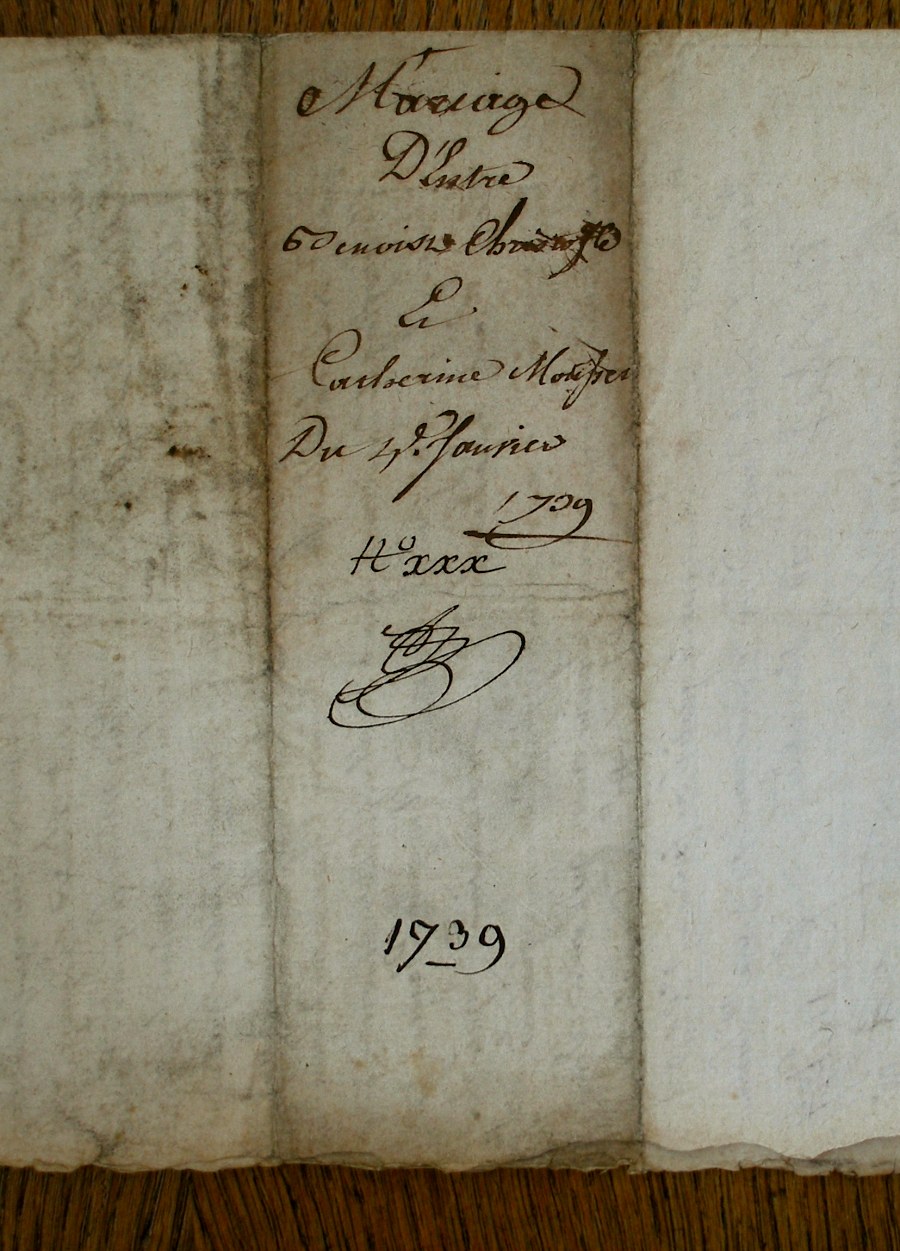 Mariage
D'Entre
Benoist
Et
Catherine
Du 4e. Janvier
1739
No xxx
1739